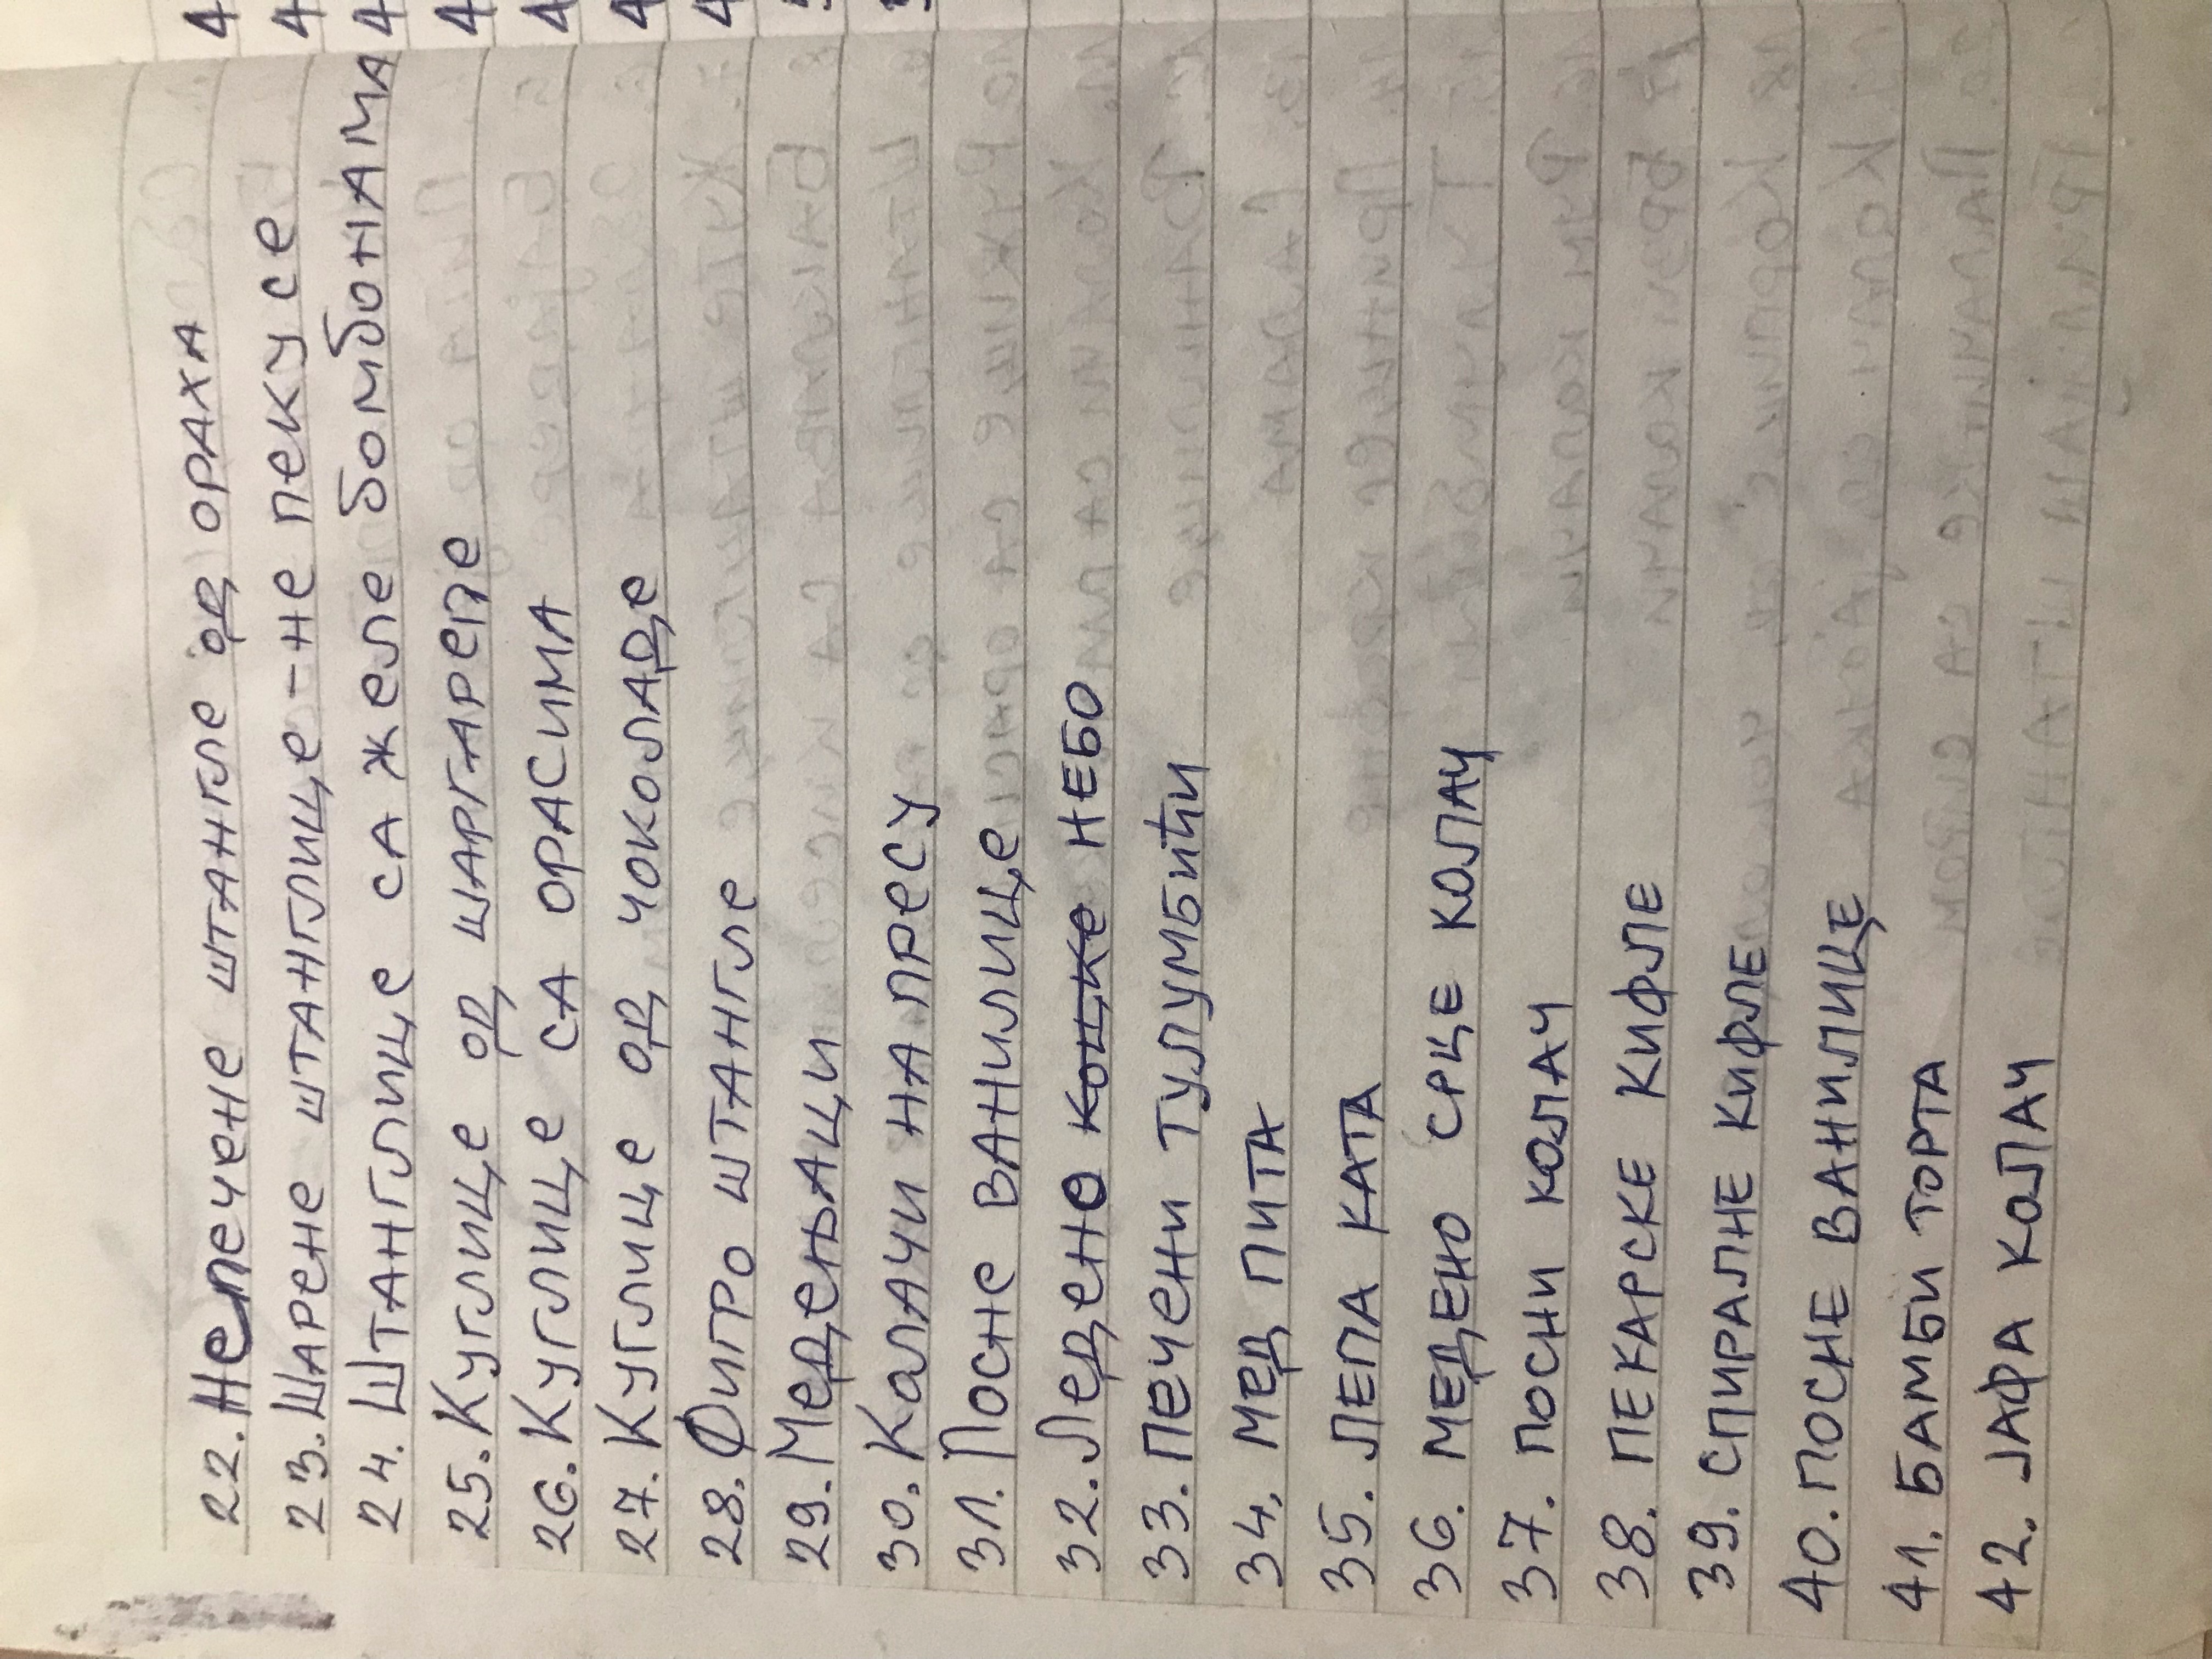 22. Непечене штангле од ораха
23. Шарене штанглице - не пеку се
24. Штанглице са желе бомбонама
25. Куглице од шаргарепе
26. Куглице са орасима
27. Куглице од чоколаде
28. Фигро штангле
29. Медењаци
30. Колачи на пресу
31. Посне ванилице
32. Ледено коцке НЕБО
33. Печени тулумбићи
34. Мед пита
35. ЛЕПА КАТА
36. МЕДЕНО СРЦЕ КОЛАЧ
37. ПОСНИ КОЛАЧ
38. ПЕКАРСКЕ КИФЛЕ
39. СПИРАЛНЕ КИФЛЕ
40. ПОСНЕ ВАНИЛИЦЕ
41. БАМБИ ТОРТА
42. ЈАФА КОЛАЧ